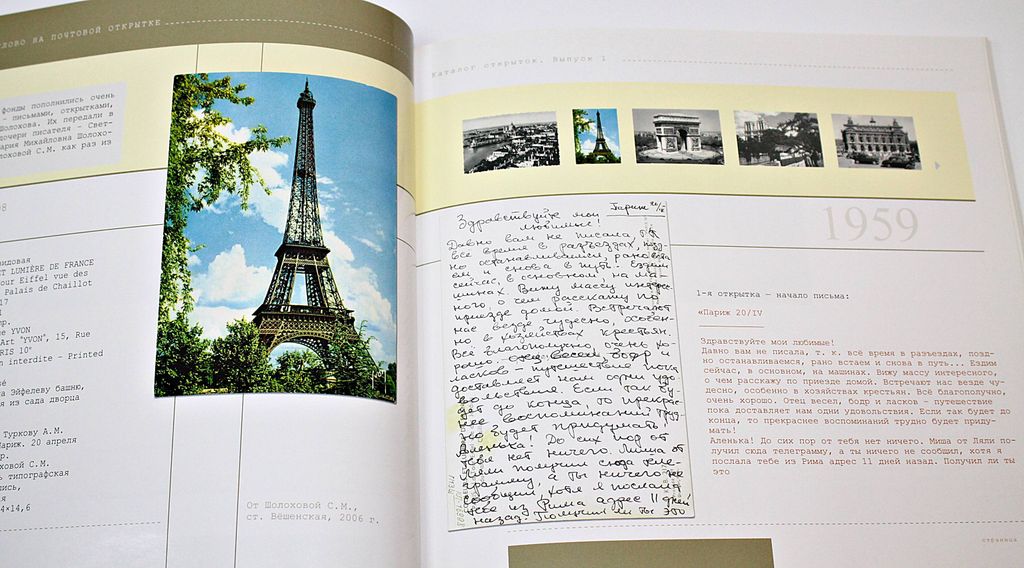 СЛОВО НА ПОЧТОВОЙ ОТКРЫТКЕ
фонды пополнились очень
– письмами, открытками,
Шолохова. Их передали в
дочери писателя – Свет-
Мария Михайловна Шолохо-
олоховой С.М. как раз из
видовая
ET LUMIÈRE DE FRANCE
our Eiffel vue des
Palais de Chaillot
17
YVON
Art "YVON", 15, Rue
RIS 10"
n interdite – Printed
Эйфелеву башню,
из сада дворца
Туркову А.М.
Париж. 20 апреля
ховой С.М.
типографская
4×14,6
От Шолоховой С.М.,
ст. Вёшенская, 2006 г.
Каталог открыток. Выпуск 1
1959
Париж 20/IV
Здравствуйте мои
любимые!
Давно вам не писала, т.к.
всё время в разъездах, позд-
но останавливаемся, рано вста-
ем и снова в путь. Ездим
сейчас, в основном, на ма-
шинах. Вижу массу интерес-
ного, о чем расскажу по
приезде домой. Встречают
нас везде чудесно, особен-
но в хозяйствах крестьян.
Всё благополучно, очень хо-
рошо. Отец весел, бодр и
ласков – путешествие пока
доставляет нам одни удо-
вольствия. Если так бу-
дет до конца, то прекрас-
нее воспоминаний труд-
но будет придумать!
Аленька! До сих пор от
тебя нет ничего. Миша от
Ляли получил сюда теле-
грамму, а ты ничего не
сообщил, хотя я послала
тебе из Рима адрес 11 дней
назад. Получил ли ты это
1-я открытка – начало письма:
«Париж 20/IV
Здравствуйте мои любимые!
Давно вам не писала, т. к. всё время в разъездах, позд-
но останавливаемся, рано встаем и снова в путь... Ездим
сейчас, в основном, на машинах. Вижу массу интересного,
о чем расскажу по приезде домой. Встречают нас везде чу-
десно, особенно в хозяйствах крестьян. Всё благополучно,
очень хорошо. Отец весел, бодр и ласков – путешествие
пока доставляет нам одни удовольствия. Если так будет до
конца, то прекраснее воспоминаний трудно будет приду-
мать!
Аленька! До сих пор от тебя нет ничего. Миша от Ляли по-
лучил сюда телеграмму, а ты ничего не сообщил, хотя я
послала тебе из Рима адрес 11 дней назад. Получил ли ты
это
страница